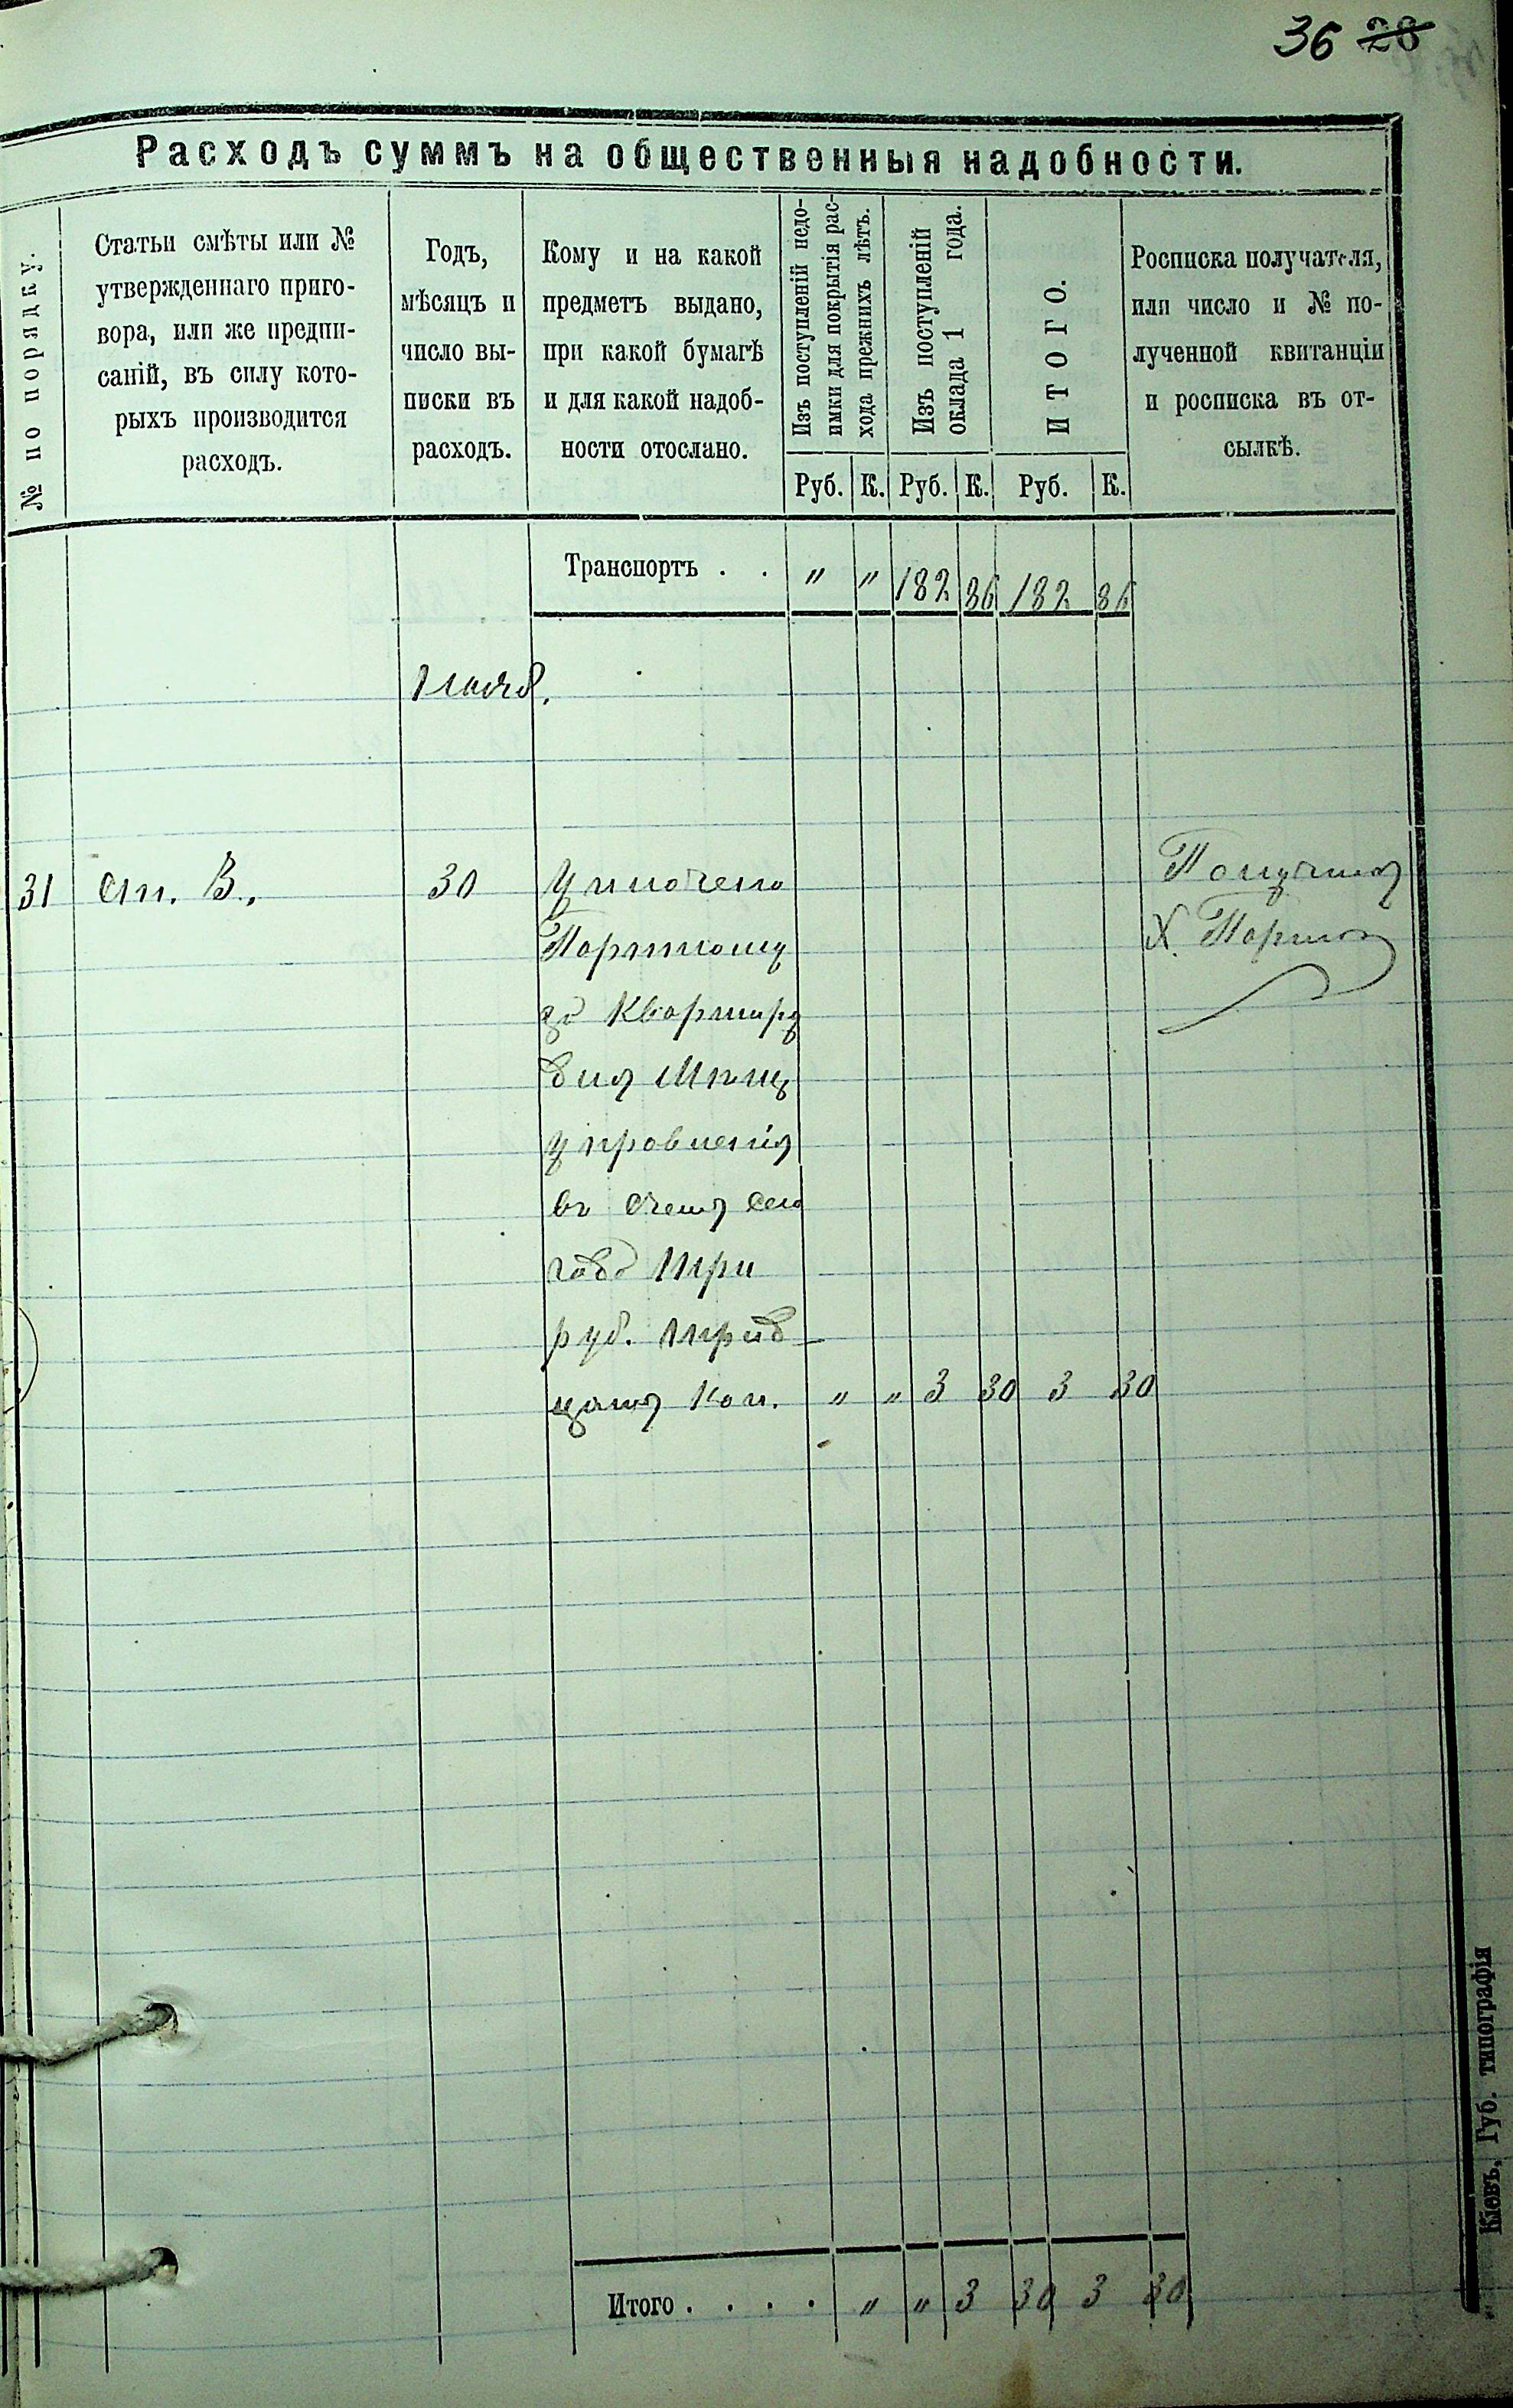 36 28
Расходъ суммъ на общественныя надобности.
№ по порядку.
Статьи смѣты или №
утвержденнаго приго-
вора, или же предпи-
саній, въ силу кото-
рыхъ производится
расходъ.
Годъ,
мѣсяцъ и
число вы-
писки въ
расходъ.
Кому и на какой
предметъ выдано,
при какой бумагѣ
и для какой надоб-
ности отослано.
Изъ поступленій недо-
имки для покрытія рас-
хода прежнихъ лѣтъ.
Изъ поступленій
оклада 1 года.
ИТОГО.
Росписка получателя,
или число и № по-
лученной квитанціи
и росписка въ от-
сылкѣ.
Руб. К. Руб. К. Руб. К.
Транспортъ . . " " 182 86 182 86
31 ст. В. 30 Уплочено
Портному
за квартиру
для Мѣщ
управленія
въ счетъ сего
года три
руб. трид-
цать коп. " " 3 30 3 30
Получилъ
Х. Портной
Итого . . . . " " 3 30 3 30
Кіевъ, Губ. типографія